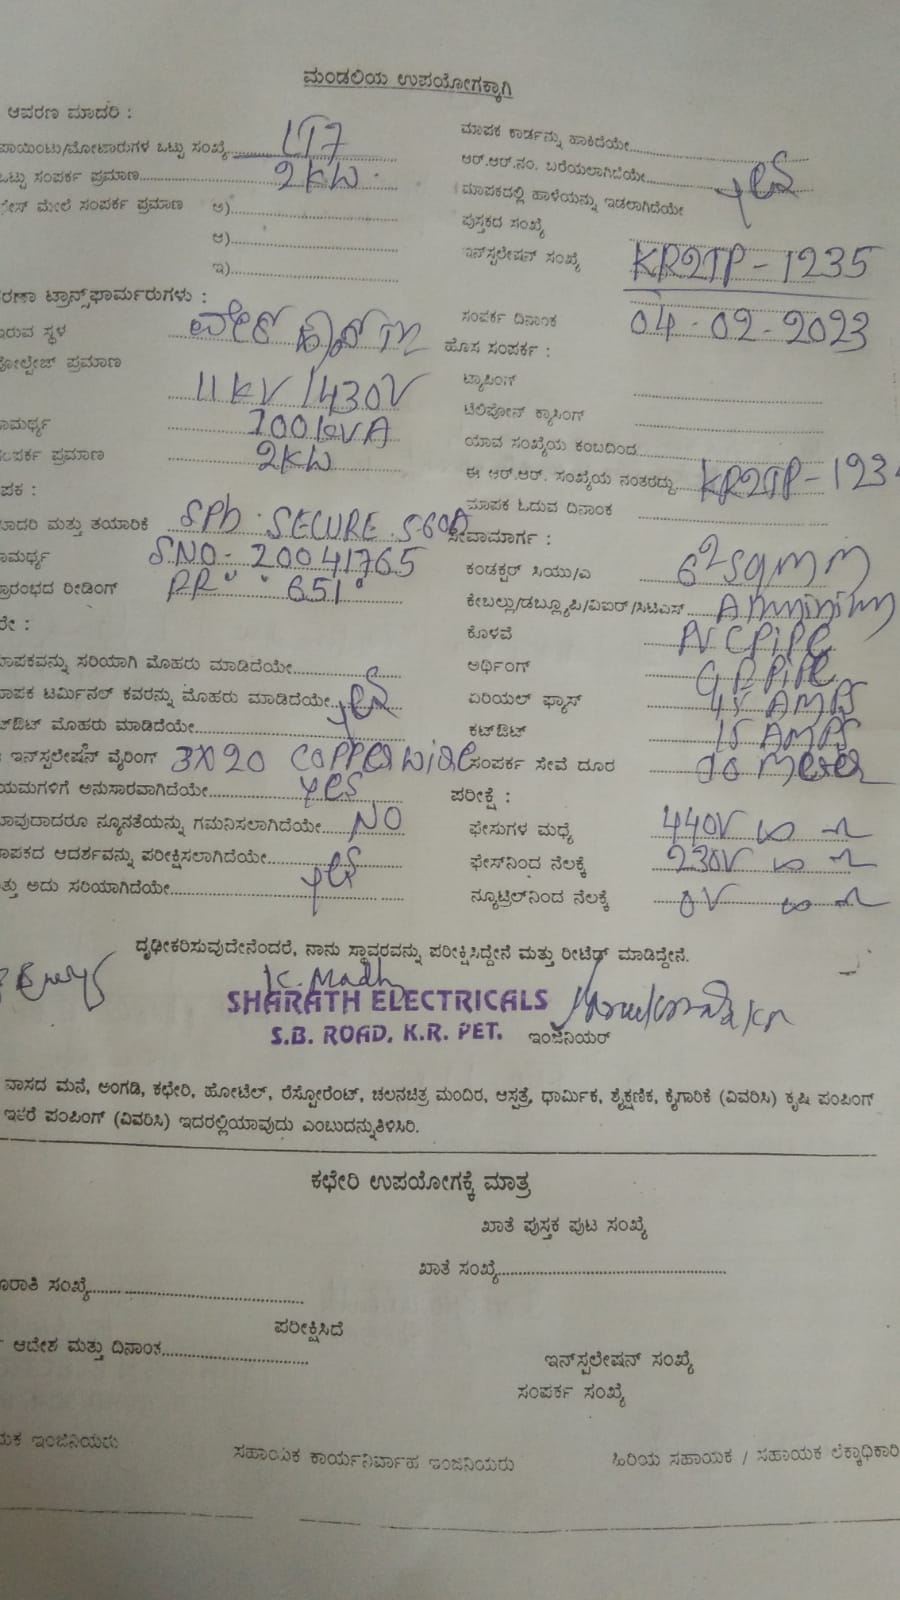 ಮಂಡಲಿಯ ಉಪಯೋಗಕ್ಕಾಗಿ
ಆವರಣ ಮಾದರಿ :
ಪಾಯಿಂಟು/ಮೋಟಾರುಗಳ ಒಟ್ಟು ಸಂಖ್ಯೆ LT7
ಒಟ್ಟು ಸಂಪರ್ಕ ಪ್ರಮಾಣ 2KW
ಮೇಲೆ ಸಂಪರ್ಕ ಪ್ರಮಾಣ ಅ)
ಆ)
ಇ)
ಟ್ರಾನ್ಸ್‌ಫಾರ್ಮರುಗಳು :
ಇರುವ ಸ್ಥಳ
ವೋಲ್ಟೇಜ್ ಪ್ರಮಾಣ
11KV/430V
100KVA
ಪ್ರಮಾಣ 2KW
ಮಾದರಿ ಮತ್ತು ತಯಾರಿಕೆ SECURE
S.NO- 20041765
ರೀಡಿಂಗ್ 651
ಸರಿಯಾಗಿ ಮೊಹರು ಮಾಡಿದೆಯೇ
ಟರ್ಮಿನಲ್ ಕವರನ್ನು ಮೊಹರು ಮಾಡಿದೆಯೇ yes
ಮೊಹರು ಮಾಡಿದೆಯೇ
ಇನ್‌ಸ್ಟಲೇಷನ್ ವೈರಿಂಗ್ 3X20 COPPER WIRE
ಅನುಸಾರವಾಗಿದೆಯೇ yes
ನ್ಯೂನತೆಯನ್ನು ಗಮನಿಸಲಾಗಿದೆಯೇ NO
ಆದರ್ಶವನ್ನು ಪರೀಕ್ಷಿಸಲಾಗಿದೆಯೇ yes
ಅದು ಸರಿಯಾಗಿದೆಯೇ
ಮಾಪಕ ಕಾರ್ಡನ್ನು ಹಾಕಿದೆಯೇ
ಆರ್.ಆರ್.ನಂ. ಬರೆಯಲಾಗಿದೆಯೇ yes
ಮಾಪಕದಲ್ಲಿ ಹಾಳೆಯನ್ನು ಇಡಲಾಗಿದೆಯೇ
ಪುಸ್ತಕದ ಸಂಖ್ಯೆ
ಇನ್‌ಸ್ಟಲೇಷನ್ ಸಂಖ್ಯೆ KR2TP-1235
ಸಂಪರ್ಕ ದಿನಾಂಕ 04-02-2023
ಹೊಸ ಸಂಪರ್ಕ :
ಟ್ಯಾಪಿಂಗ್
ಟೆಲಿಫೋನ್ ಕ್ರಾಸಿಂಗ್
ಯಾವ ಸಂಖ್ಯೆಯ ಕಂಬದಿಂದ
ಈ ಆರ್.ಆರ್. ಸಂಖ್ಯೆಯ ನಂತರದ್ದು KR2TP-1234
ಮಾಪಕ ಓದುವ ದಿನಾಂಕ
ಸೇವಾಮಾರ್ಗ :
ಕಂಡಕ್ಟರ್ ಸಿಯು/ಎ
ಕೇಬಲ್ಲು/ಡಬ್ಲ್ಯೂಪಿ/ವಿಐಆರ್/ಸಿಟಿಎಸ್
ಕೊಳವೆ PVC PIPE
ಅರ್ಥಿಂಗ್ G.I PIPE
ಏರಿಯಲ್ ಫ್ಯೂಸ್
ಕಟ್‌ಔಟ್ 15 AMPS
ಸಂಪರ್ಕ ಸೇವೆ ದೂರ
ಪರೀಕ್ಷೆ :
ಫೇಸುಗಳ ಮಧ್ಯೆ 440V ∞ Ω
ಫೇಸ್‌ನಿಂದ ನೆಲಕ್ಕೆ 230V ∞ Ω
ನ್ಯೂಟ್ರಲ್‌ನಿಂದ ನೆಲಕ್ಕೆ 0V ∞ Ω
ದೃಢೀಕರಿಸುವುದೇನೆಂದರೆ, ನಾನು ಸ್ಥಾವರವನ್ನು ಪರೀಕ್ಷಿಸಿದ್ದೇನೆ ಮತ್ತು ರೀಟೆಸ್ಟ್ ಮಾಡಿದ್ದೇನೆ.
SHARATH ELECTRICALS
S.B. ROAD, K.R. PET.
ಇಂಜಿನಿಯರ್
ವಾಸದ ಮನೆ, ಅಂಗಡಿ, ಕಛೇರಿ, ಹೋಟೆಲ್, ರೆಸ್ಟೋರೆಂಟ್, ಚಲನಚಿತ್ರ ಮಂದಿರ, ಆಸ್ಪತ್ರೆ, ಧಾರ್ಮಿಕ, ಶೈಕ್ಷಣಿಕ, ಕೈಗಾರಿಕೆ (ವಿವರಿಸಿ) ಕೃಷಿ ಪಂಪಿಂಗ್
ಇತರೆ ಪಂಪಿಂಗ್ (ವಿವರಿಸಿ) ಇದರಲ್ಲಿಯಾವುದು ಎಂಬುದನ್ನುತಿಳಿಸಿರಿ.
ಕಛೇರಿ ಉಪಯೋಗಕ್ಕೆ ಮಾತ್ರ
ಖಾತೆ ಪುಸ್ತಕ ಪುಟ ಸಂಖ್ಯೆ
ಖಾತೆ ಸಂಖ್ಯೆ
ಸಂಖ್ಯೆ
ಪರೀಕ್ಷಿಸಿದೆ
ಆದೇಶ ಮತ್ತು ದಿನಾಂಕ
ಇನ್‌ಸ್ಟಲೇಷನ್ ಸಂಖ್ಯೆ
ಸಂಪರ್ಕ ಸಂಖ್ಯೆ
ಇಂಜಿನಿಯರು
ಸಹಾಯಕ ಕಾರ್ಯನಿರ್ವಾಹ ಇಂಜನಿಯರು
ಹಿರಿಯ ಸಹಾಯಕ / ಸಹಾಯಕ ಲೆಕ್ಕಾಧಿಕಾರಿ